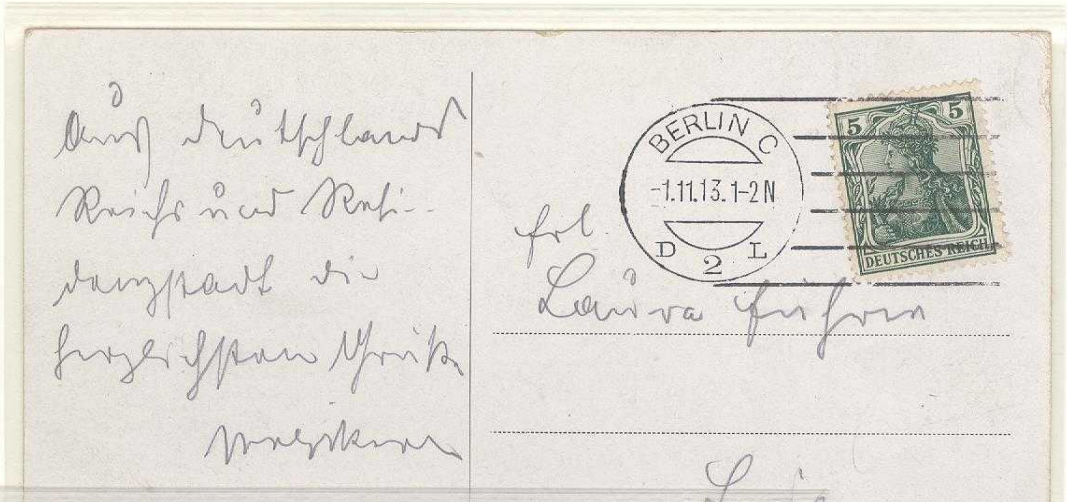 Aus Deutschlands
Reichs und Resi-
denzstadt die
herzlichsten Grüße
BERLIN C
-1.11.13.1-2N
D 2 L
5 5
DEUTSCHES REICH
Frl.
Laura